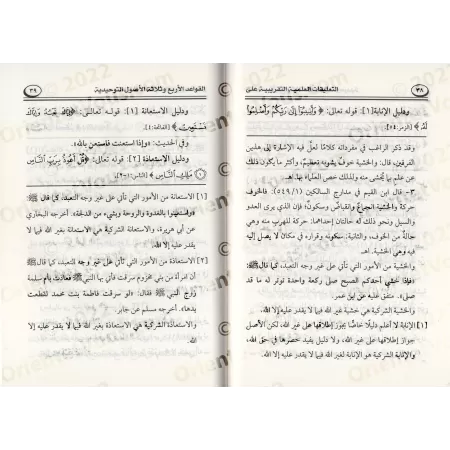 ٣٨ التعليقات العلمية التقريبية على
ودليل الإنابة [١]: قوله تعالى: ﴿ وَأَنِيبُوا إِلَى رَبِّكُمْ وَأَسْلِمُوا
لَهُ ﴾ [الزمر: ٥٤]
وقد ذكر الراغب في مفرداته كلامًا لعلَّ فيه الإشارة إلى هذين
الفرقين، قال: والخشية خوفٌ يشوبه تعظيم، وأكثر ما يكون ذلك
عن علم بما يُخشى منه ولذلك خص العلماء بها. اهـ
٣- قال ابن القيم في مدارج السالكين (٥٤٩/١): فالخوف
حركة والخشية انجماع وانقباض وسكون؛ فإن الذي يرى العدو
والسيل ونحو ذلك له حالتان إحداهما: حركة للهرب منه وهي
حالة من الخوف، والثانية: سكونه وقراره في مكان لا يصل إليه
فيه وهي الخشية. اهـ
والخشية من الأمور التي تأتي على غير وجه التعبد، كما قال ﷺ:
«فإذا خشي أحدكم الصبح صلى ركعة واحدة توتر له ما قد
صلى». متفق عليه عن ابن عمر.
والخشية الشركية هي خشية غير الله فيما لا يقدر عليه إلا الله.
[١] الإنابة لا أعلم دليلًا خاصًا يجوز إطلاقها على غير الله، لكن الأصل
جواز إطلاقها على غير الله، ولا دليل يفيد حصرها في حق الله،
والإنابة الشركية هو الإنابة لغير الله فيما لا يقدر عليه إلا الله.
القواعد الأربع وثلاثة الأصول التوحيدية ٣٩
ودليل الاستعانة [١]: قوله تعالى: ﴿ إِيَّاكَ نَعْبُدُ وَإِيَّاكَ
نَسْتَعِينُ ﴾ [الفاتحة: ٤]
وفي الحديث: «وإذا استعنت فاستعن بالله»
ودليل الاستعاذة [٢]: قوله تعالى: ﴿ قُلْ أَعُوذُ بِرَبِّ النَّاسِ
مَلِكِ النَّاسِ ﴾ [الناس: ١-٢].
[١] الاستعانة من الأمور التي تأتي على غير وجه التعبد، كما قال ﷺ:
«واستعينوا بالغدوة والروحة وبشيء من الدلجة». أخرجه البخاري
عن أبي هريرة، والاستعانة الشركية هي الاستعانة بغير الله فيما لا
يقدر عليه إلا الله.
[٢] الاستعاذة من الأمور التي تأتي على غير وجه التعبد، كما قال جابر:
أن امرأة من بني مخزوم سرقت فأتي بها النبي ﷺ فعاذت بأم سلمة
زوج النبي ﷺ فقال: «لو سرقت فاطمة بنت محمد لقطعت
يدها». أخرجه مسلم عن جابر.
والاستعاذة الشركية هي الاستعاذة بغير الله فيما لا يقدر عليه إلا
الله.